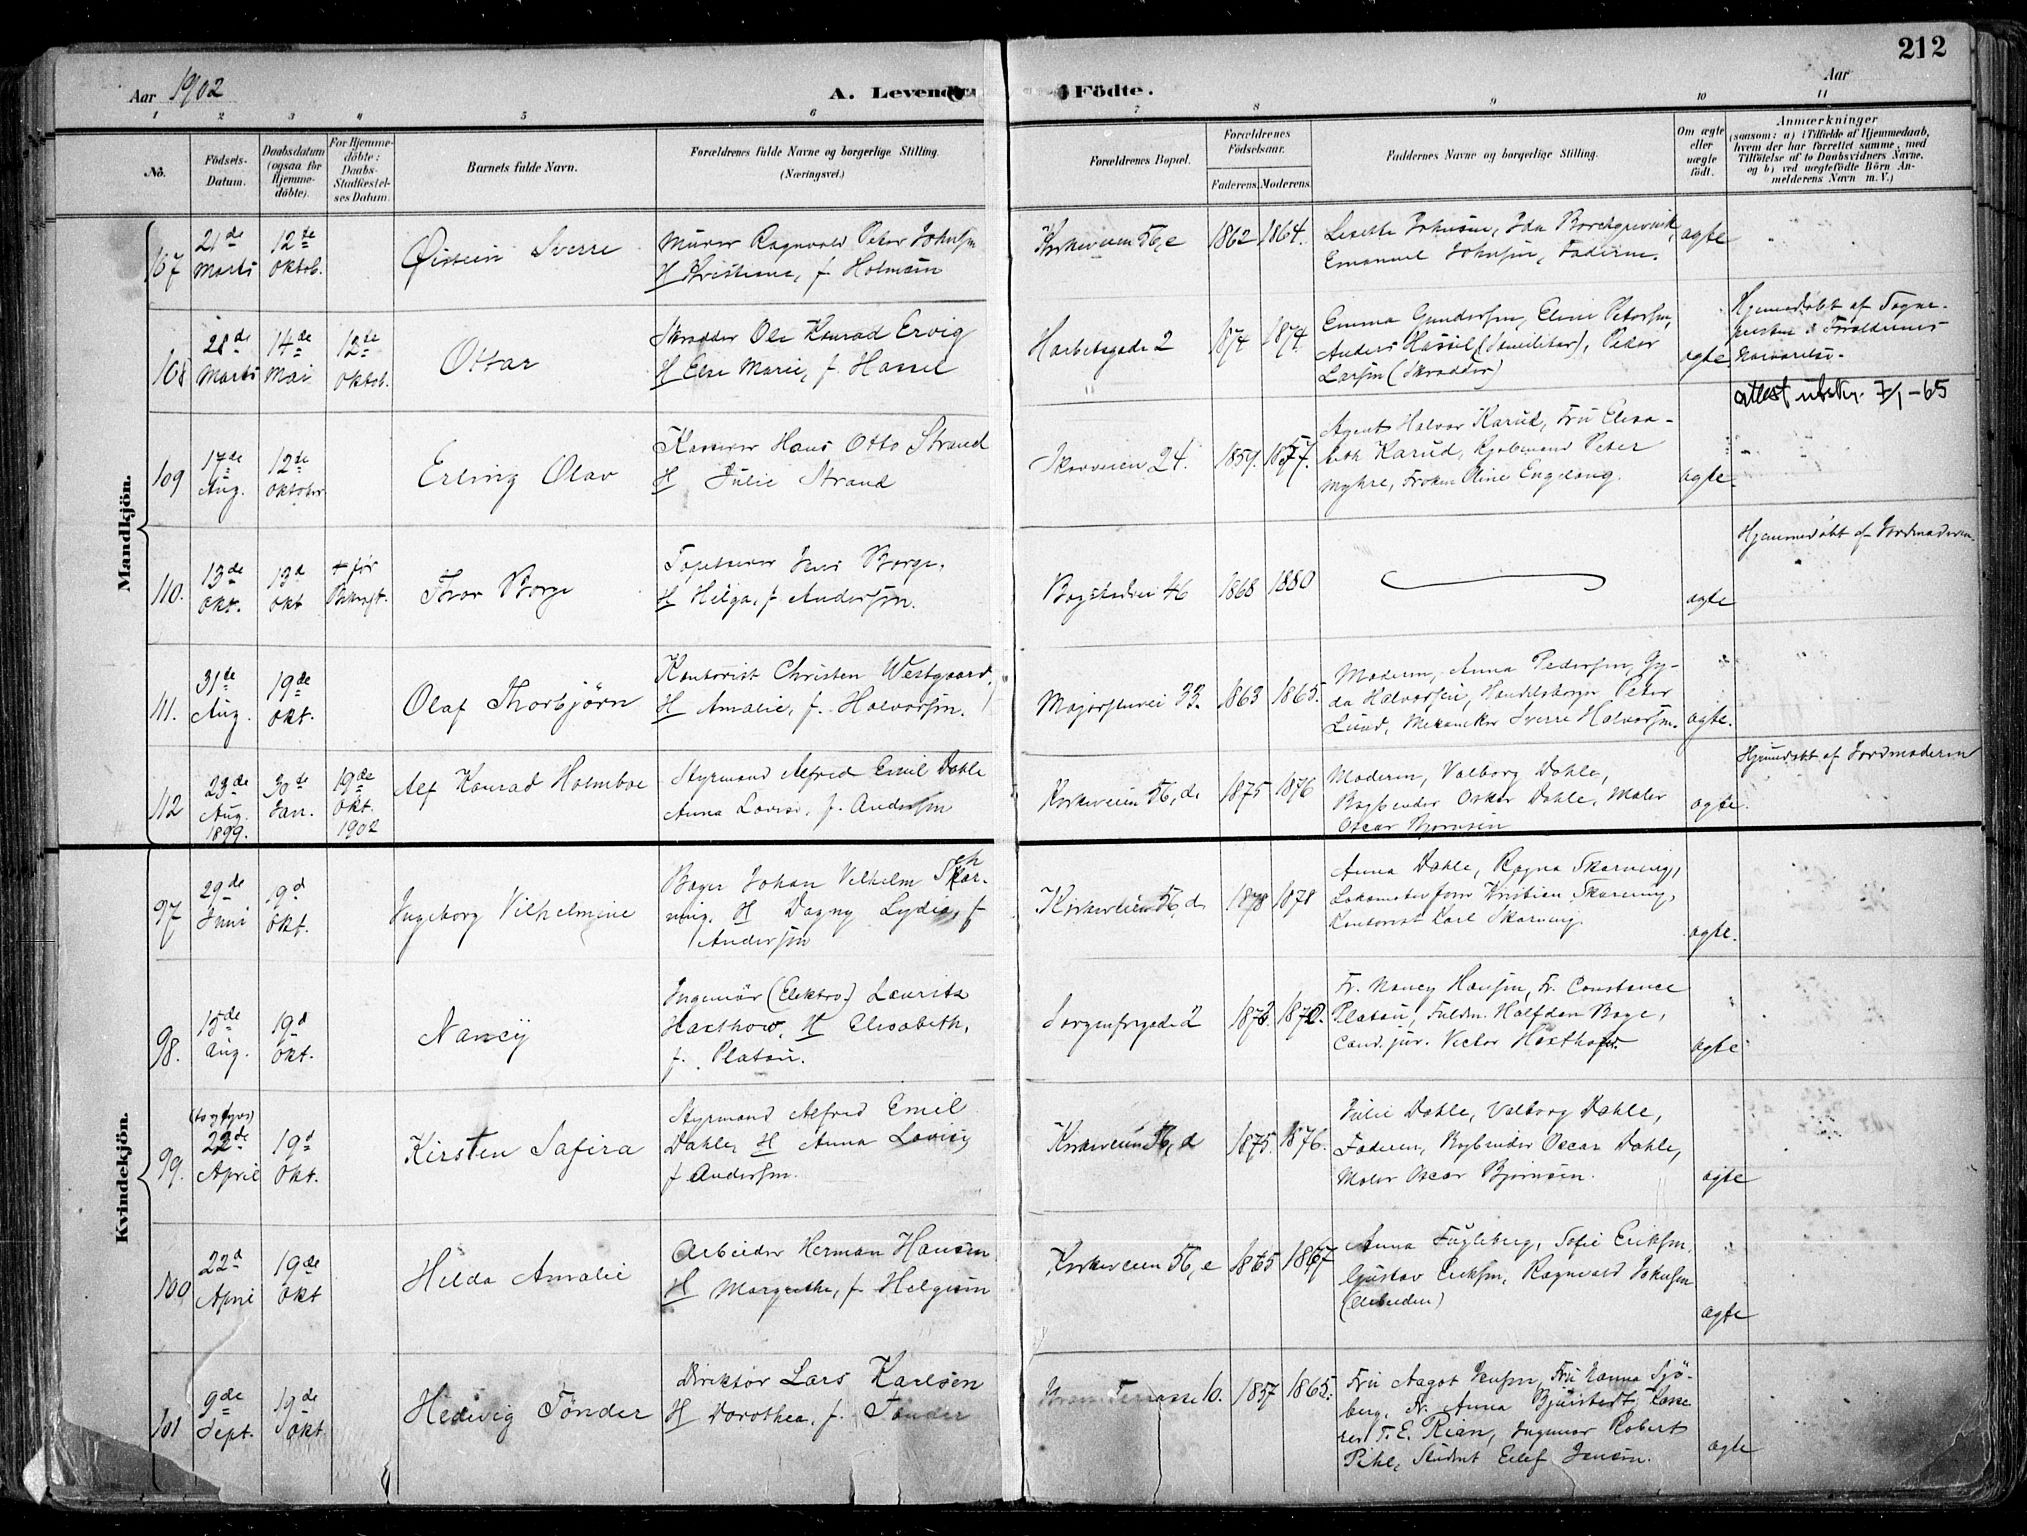 212
Aar 1902
A. Levende
Födte.
Aar
1 2 3 4 5 6 7 8 9 10 11
No.
Födsels-
Datum.
Daabsdatum
(ogsaa for
Hjemme-
döbte).
For Hjemme-
döbte:
Daabs-
Stadfæstel-
ses Datum.
Barnets fulde Navn.
Forældrenes fulde Navne og borgerlige Stilling.
(Næringsvei.)
Forældrenes Bopæl.
Forældrenes
Födselsaar.
Faderens. Moderens.
Faddernes Navne og borgerlige Stilling.
Om ægte
eller
uægte
födt.
Anmærkninger
(saasom: a) i Tilfælde af Hjemmedaab,
hvem der har forrettet samme, med
Tilföielse af to Daabsvidners Navne,
og b) ved uægtefödte Börn An-
melderens Navn m. V.)
Mandkjön.
107
21de
Marts
12te
Oktob.
Øistein Sverre
Murer Ragnvald Peter Johnsen
H Kristiane, f. Holmsen
Kirkeveien 56, e
1862 1864.
Lisette Johnsen, Ida Borchgrevink,
Emanuel Johnsen, Faderen.
ægte
108
28de
Marts
14de
Mai
12te
Oktob.
Ottar
Skrædder Ole Konrad Ervig
H Else Marie, f. Hassel
Harbitzgade 2
1874 1874
Emma Gundersen, Eline Petersen,
Anders Hassel, Peder
Larsen (Skrædder)
ægte.
Hjemmedøbt af Sogne-
præsten i Forældrenes
Nærværelse.
attest utskr. 7/1-65
109
17de
Aug.
12te
Oktober
Erling Olav
Kasserer Hans Otto Strand
H Julie Strand
Skovveien 24.
1859. 1857.
Agent Halvor Karud, Fru Elisa-
beth Karud, Kjøbmand Peter
Myhre, Frøken Oline Engebang.
ægte
110.
13de
Okt.
13d
Okt
† før
Bekræft.
Thor Borge
Tapetserer Jens Borge,
H Helga, f. Andersen.
Bogstadvei 46
1868 1880
ægte
Hjemmedøbt af Jordmoderen.
111.
31de
Aug.
19de
Okt.
Olaf Thorbjørn
Kontorist Christen Westgaard,
H Amalie, f. Halvorsen.
Majorstuvei 33.
1863 1865.
Moderen, Anna Pedersen, Gy-
da Halvorsen, Handelsborger Peter
Lund, Mekaniker Sverre Halvorsen.
ægte.
112
23de
Aug.
1899.
30te
Jan.
19de
Okt.
1902
Alf Konrad Holmboe
Styrmand Alfred Emil Dahle
Anna Lovise, f. Andersen
Kirkeveien 56, d.
1875 1876
Moderen, Valborg Dahle,
Bogbinder Oskar Dahle, Maler
Oscar Bjørnsen
ægte.
Hjemdøbt af Jordmoderen
Kvindekjön.
97
29de
Juni
9d
Okt.
Ingeborg Vilhelmine
Bager Johan Vilhelm Skar-
ning. H Dagny Lydia, f
Andersen
Kirkeveien 56, d
1878 1878
Anna Dahle, Ragna Skarning,
Lokomotivfører Kristian Skarning,
Kontorist Karl Skarning.
ægte.
98.
15de
Aug.
19d
Okt.
Nancy
Ingeniør (Elektro.) Lauritz
Haxthow, H Elisabeth,
f. Platou.
Sorgenfrigade 2
1873. 1872.
Fr. Nancy Hansen, Fr. Constance
Platou, Fuldm. Halfdan Boye,
Cand. jur. Victor Haxthow.
ægte
99.
22de
April
19d
Okt.
Kirsten Safira
Styrmand Alfred Emil
Dahle, H Anna Lovise,
f Andersen.
Kirkeveien 56, d
1875. 1876.
Julie Dahle, Valborg Dahle,
Faderen, Bogbinder Oscar Dahle,
Maler Oscar Bjørnsen.
ægte
100
22d
April
19de
Okt
Helda Amalie
Arbeider Herman Hansen
H Margrethe, f. Helgesen
Kirkeveien 56, e
1865 1867
Anna Fugleberg, Sofie Eriksen,
Gustav Eriksen, Ragnvald Johnsen
(Arbeidere)
ægte
101
9de
Sept.
19de
Okt.
Hedevig Tønder
Direktør Lars Karlsen
H Dorothea, f. Tønder
Terrasse 10.
1857 1865.
Fru Aagot Jensen, Fru Nanna Sjö-
berg, Fr. Anna Bjurstedt, Kasse-
rer T. E. Rian, Ingeniør Robert
Pihl, Student Eilef Jensen.
ægte